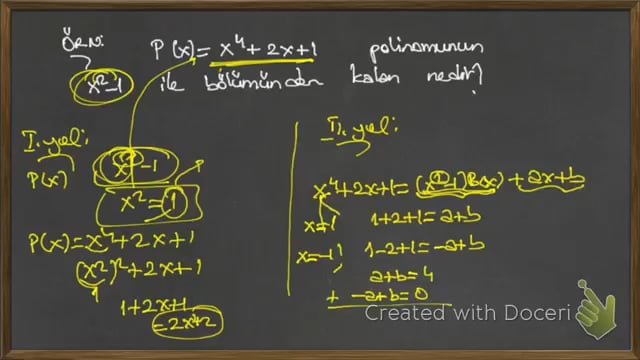 ÖRN: P(x) = x⁴ + 2x + 1 polinomunun
x² - 1 ile bölümünden kalan nedir?
I. yol:
P(x) x² - 1
x² = 1
P(x) = x⁴ + 2x + 1
(x²)² + 2x + 1
1
1 + 2x + 1
= 2x + 2
II. yol:
x⁴ + 2x + 1 = (x² - 1) B(x) + ax + b
x = 1 1 + 2 + 1 = a + b
x = -1 1 - 2 + 1 = -a + b
a + b = 4
+ -a + b = 0
Created with Doceri